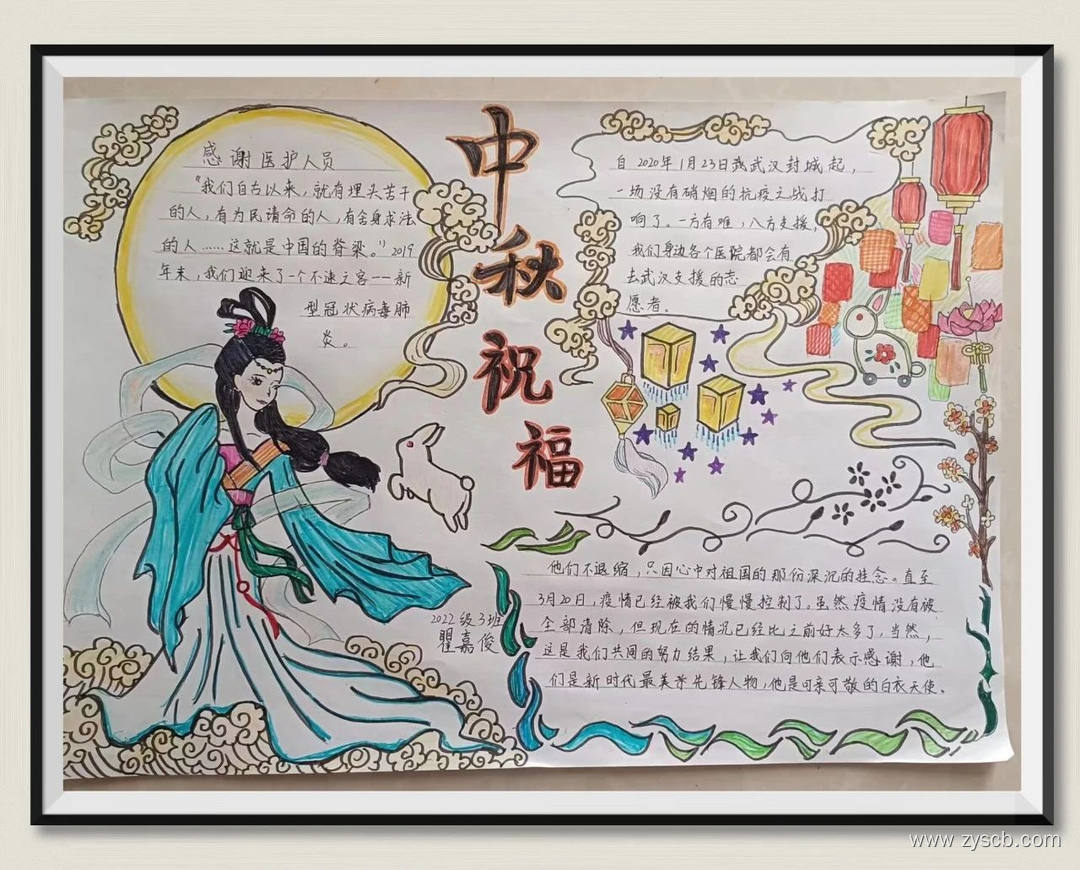 中秋祝福
感谢医护人员
"我们自古以来，就有埋头苦干
的人，有为民请命的人，有舍身求法
的人……这就是中国的脊梁。"2019
年末，我们迎来了一个不速之客——新
型冠状病毒肺
炎。
自2020年1月23日我武汉封城起，
一场没有硝烟的抗疫之战打
响了。一方有难，八方支援，
我们身边各个医院都会有
去武汉支援的志
愿者。
他们不退缩，只因心中对祖国的那份深沉的挂念。直至
3月20日，疫情已经被我们慢慢控制了。虽然疫情没有被
全部清除，但现在的情况已经比之前好太多了，当然，
这是我们共同的努力结果，让我们向他们表示感谢，他
们是新时代最美先锋人物，他是可亲可敬的白衣天使。
2022级3班
瞿嘉俊
www.zyscb.com